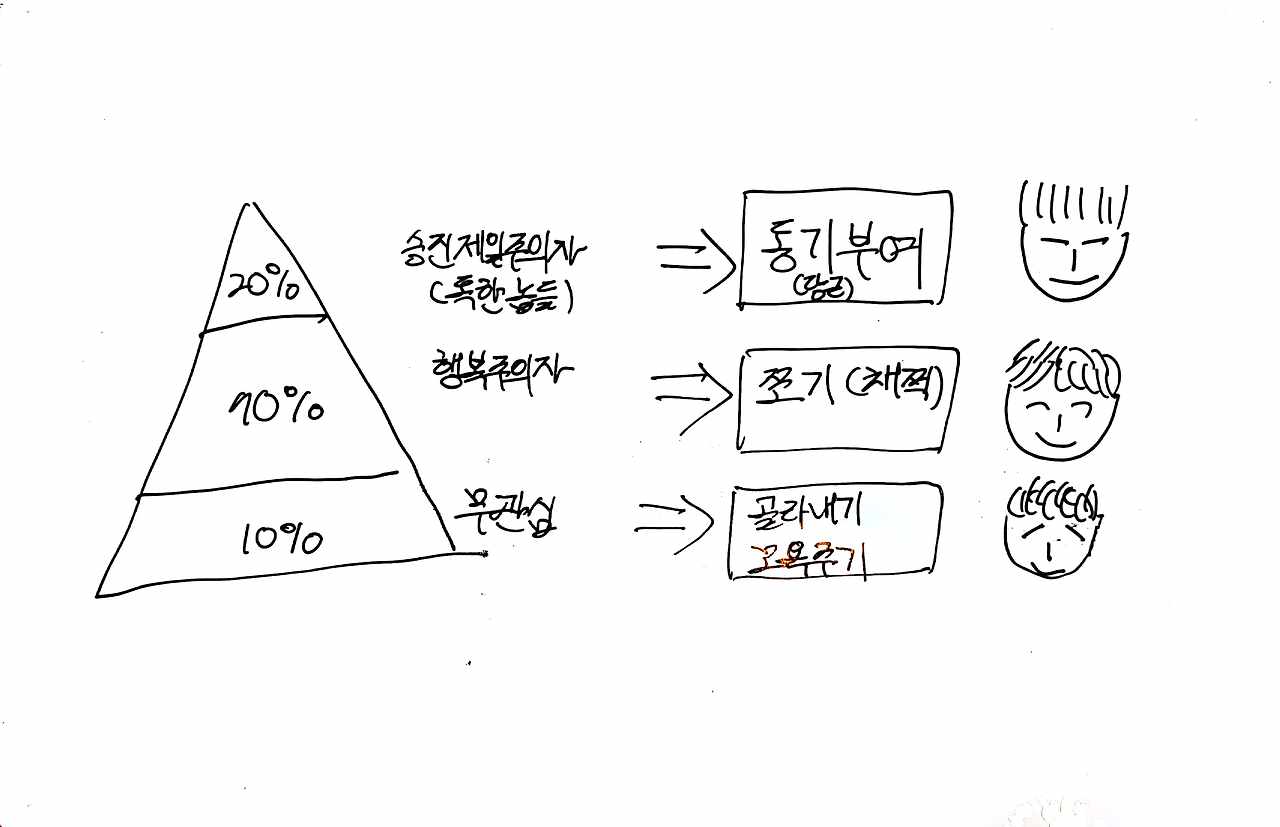 20%
승진제일주의자
(독한 놈들)
동기부여
(당근)
70%
행복주의자
쪼기 (채찍)
10%
무관심
골라내기